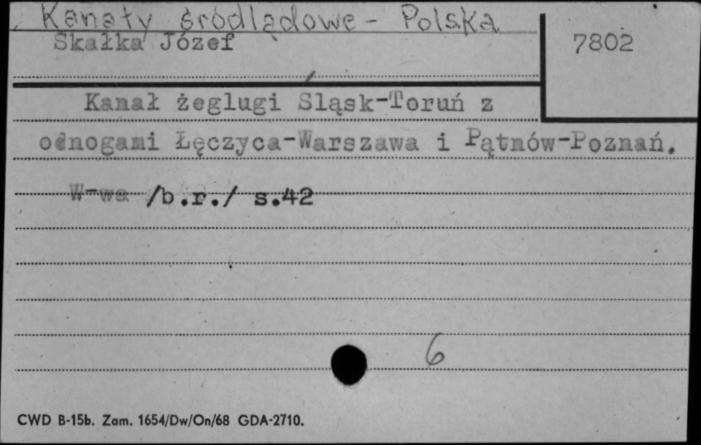 Kanały śródlądowe - Polska
Skałka Józef
7802
Kanał żeglugi Śląsk-Toruń z
odnogami Łęczyca-Warszawa i Pątnów-Poznań.
W-wa /b.r./ s.42
6
CWD B-15b. Zam. 1654/Dw/On/68 GDA-2710.